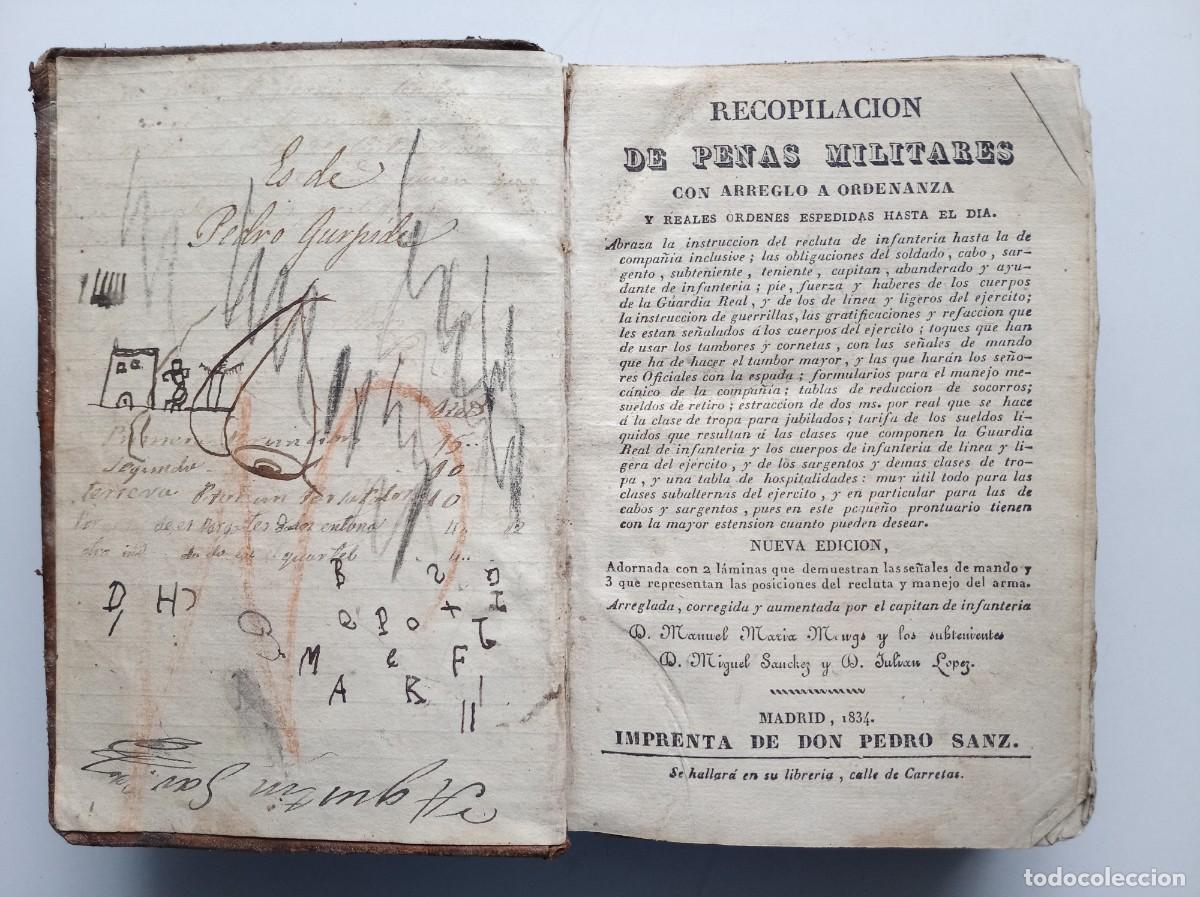 Es de
Pedro Gurpide
Primera
segundo 10
tercera 10
quartel
D, H
B 2
a P o t
M e F
A K
Agustin
RECOPILACION
DE PENAS MILITARES
CON ARREGLO A ORDENANZA
Y REALES ORDENES ESPEDIDAS HASTA EL DIA.
Abraza la instruccion del recluta de infanteria hasta la de
compañia inclusive; las obligaciones del soldado, cabo, sar-
gento, subteniente, teniente, capitan, abanderado y ayu-
dante de infanteria; pie, fuerza y haberes de los cuerpos
de la Guardia Real, y de los de linea y ligeros del ejercito;
la instruccion de guerrillas, las gratificaciones y refaccion que
les estan señalados á los cuerpos del ejercito; toques que han
de usar los tambores y cornetas, con las señales de mando
que ha de hacer el tambor mayor, y las que harán los seño-
res Oficiales con la espada; formularios para el manejo me-
cánico de la compañia; tablas de reduccion de socorros;
sueldos de retiro; estraccion de dos ms. por real que se hace
á la clase de tropa para jubilados; tarifa de los sueldos lí-
quidos que resultan á las clases que componen la Guardia
Real de infanteria y los cuerpos de infanteria de linea y li-
gera del ejercito, y de los sargentos y demas clases de tro-
pa, y una tabla de hospitalidades: muy útil todo para las
clases subalternas del ejercito, y en particular para las de
cabos y sargentos, pues en este pequeño prontuario tienen
con la mayor estension cuanto pueden desear.
NUEVA EDICION,
Adornada con 2 láminas que demuestran las señales de mando y
3 que representan las posiciones del recluta y manejo del arma.
Arreglada, corregida y aumentada por el capitan de infanteria
D. Manuel Maria y los subtenientes
D. Miguel Sanchez y D. Julian Lopez.
MADRID, 1834.
IMPRENTA DE DON PEDRO SANZ.
Se hallará en su libreria, calle de Carretas.
todocoleccion